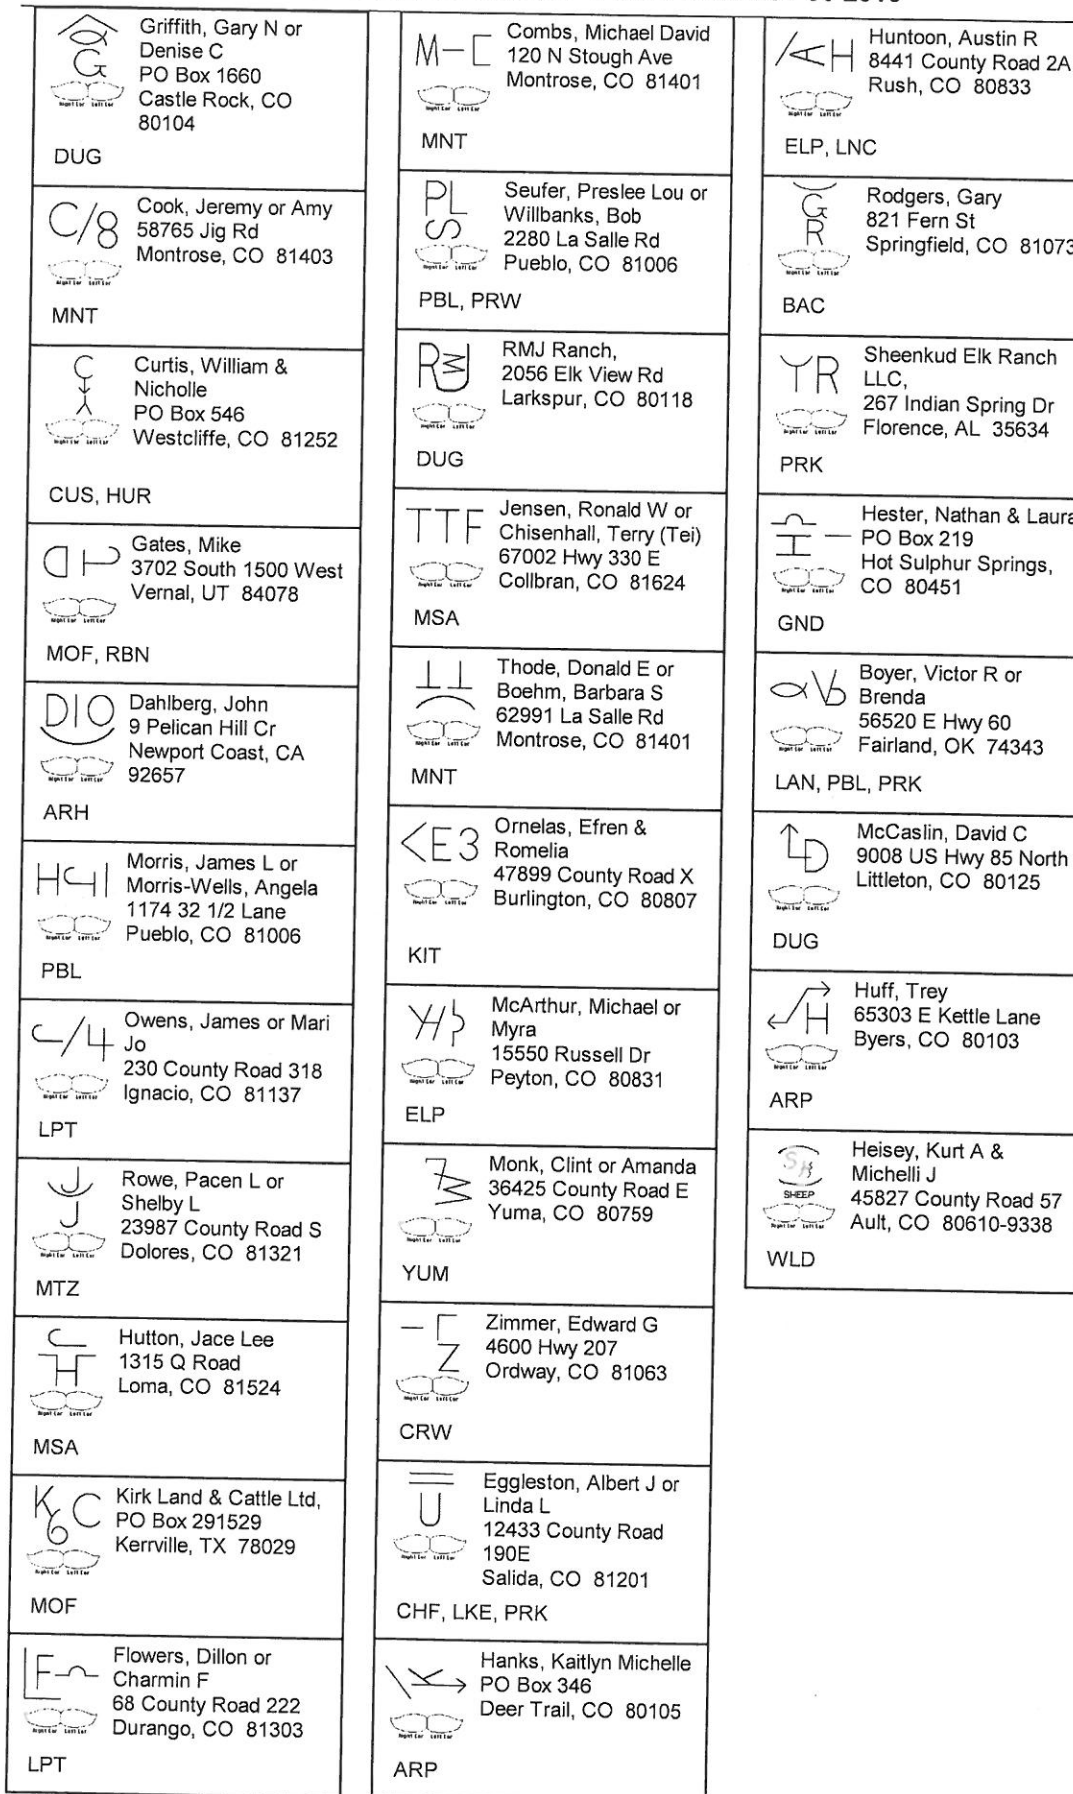 Griffith, Gary N or
Denise C
PO Box 1660
Castle Rock, CO
80104
Right Ear Left Ear
DUG
C/8
Cook, Jeremy or Amy
58765 Jig Rd
Montrose, CO 81403
Right Ear Left Ear
MNT
Curtis, William &
Nicholle
PO Box 546
Westcliffe, CO 81252
Right Ear Left Ear
CUS, HUR
Gates, Mike
3702 South 1500 West
Vernal, UT 84078
Right Ear Left Ear
MOF, RBN
DIO
Dahlberg, John
9 Pelican Hill Cr
Newport Coast, CA
92657
Right Ear Left Ear
ARH
Morris, James L or
Morris-Wells, Angela
1174 32 1/2 Lane
Pueblo, CO 81006
Right Ear Left Ear
PBL
Owens, James or Mari
Jo
230 County Road 318
Ignacio, CO 81137
Right Ear Left Ear
LPT
J
J
Rowe, Pacen L or
Shelby L
23987 County Road S
Dolores, CO 81321
Right Ear Left Ear
MTZ
Hutton, Jace Lee
1315 Q Road
Loma, CO 81524
Right Ear Left Ear
MSA
K6C
Kirk Land & Cattle Ltd,
PO Box 291529
Kerrville, TX 78029
Right Ear Left Ear
MOF
Flowers, Dillon or
Charmin F
68 County Road 222
Durango, CO 81303
Right Ear Left Ear
LPT
Combs, Michael David
120 N Stough Ave
Montrose, CO 81401
Right Ear Left Ear
MNT
PL
S
Seufer, Preslee Lou or
Willbanks, Bob
2280 La Salle Rd
Pueblo, CO 81006
Right Ear Left Ear
PBL, PRW
RMJ Ranch,
2056 Elk View Rd
Larkspur, CO 80118
Right Ear Left Ear
DUG
TTF
Jensen, Ronald W or
Chisenhall, Terry (Tei)
67002 Hwy 330 E
Collbran, CO 81624
Right Ear Left Ear
MSA
Thode, Donald E or
Boehm, Barbara S
62991 La Salle Rd
Montrose, CO 81401
Right Ear Left Ear
MNT
<E3
Ornelas, Efren &
Romelia
47899 County Road X
Burlington, CO 80807
Right Ear Left Ear
KIT
McArthur, Michael or
Myra
15550 Russell Dr
Peyton, CO 80831
Right Ear Left Ear
ELP
Monk, Clint or Amanda
36425 County Road E
Yuma, CO 80759
Right Ear Left Ear
YUM
Zimmer, Edward G
4600 Hwy 207
Ordway, CO 81063
Right Ear Left Ear
CRW
U
Eggleston, Albert J or
Linda L
12433 County Road
190E
Salida, CO 81201
Right Ear Left Ear
CHF, LKE, PRK
Hanks, Kaitlyn Michelle
PO Box 346
Deer Trail, CO 80105
Right Ear Left Ear
ARP
Huntoon, Austin R
8441 County Road 2A
Rush, CO 80833
Right Ear Left Ear
ELP, LNC
G
R
Rodgers, Gary
821 Fern St
Springfield, CO 81073
Right Ear Left Ear
BAC
YR
Sheenkud Elk Ranch
LLC,
267 Indian Spring Dr
Florence, AL 35634
Right Ear Left Ear
PRK
Hester, Nathan & Laura
PO Box 219
Hot Sulphur Springs,
CO 80451
Right Ear Left Ear
GND
Boyer, Victor R or
Brenda
56520 E Hwy 60
Fairland, OK 74343
Right Ear Left Ear
LAN, PBL, PRK
McCaslin, David C
9008 US Hwy 85 North
Littleton, CO 80125
Right Ear Left Ear
DUG
Huff, Trey
65303 E Kettle Lane
Byers, CO 80103
Right Ear Left Ear
ARP
SHEEP
Heisey, Kurt A &
Michelli J
45827 County Road 57
Ault, CO 80610-9338
Right Ear Left Ear
WLD